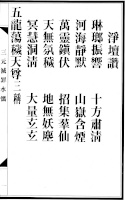 淨壇讚
琳瑯振響　十方肅清
河海靜默　山嶽含煙
萬靈鎮伏　招集羣仙
天無氛穢　地無妖塵
冥慧洞清　大量玄玄
五龍蕩穢天尊三稱
三元滅罪水懺